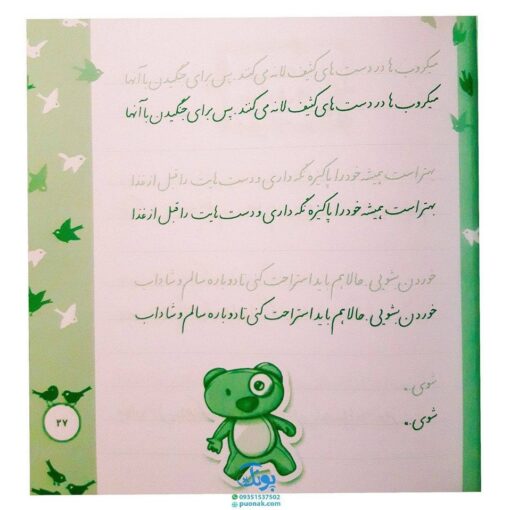 میکروب ها در دست های کثیف لانه می کنند. پس برای جنگیدن با آنها
میکروب ها در دست های کثیف لانه می کنند. پس برای جنگیدن با آنها
بهتر است همیشه خود را پاکیزه نگه داری و دست هایت را قبل از غذا
بهتر است همیشه خود را پاکیزه نگه داری و دست هایت را قبل از غذا
خوردن بشویی. حالا هم باید استراحت کنی تا دوباره سالم و شاداب
خوردن بشویی. حالا هم باید استراحت کنی تا دوباره سالم و شاداب
شوی.
شوی.
۲۷
پونک
09351537502
puonak.com